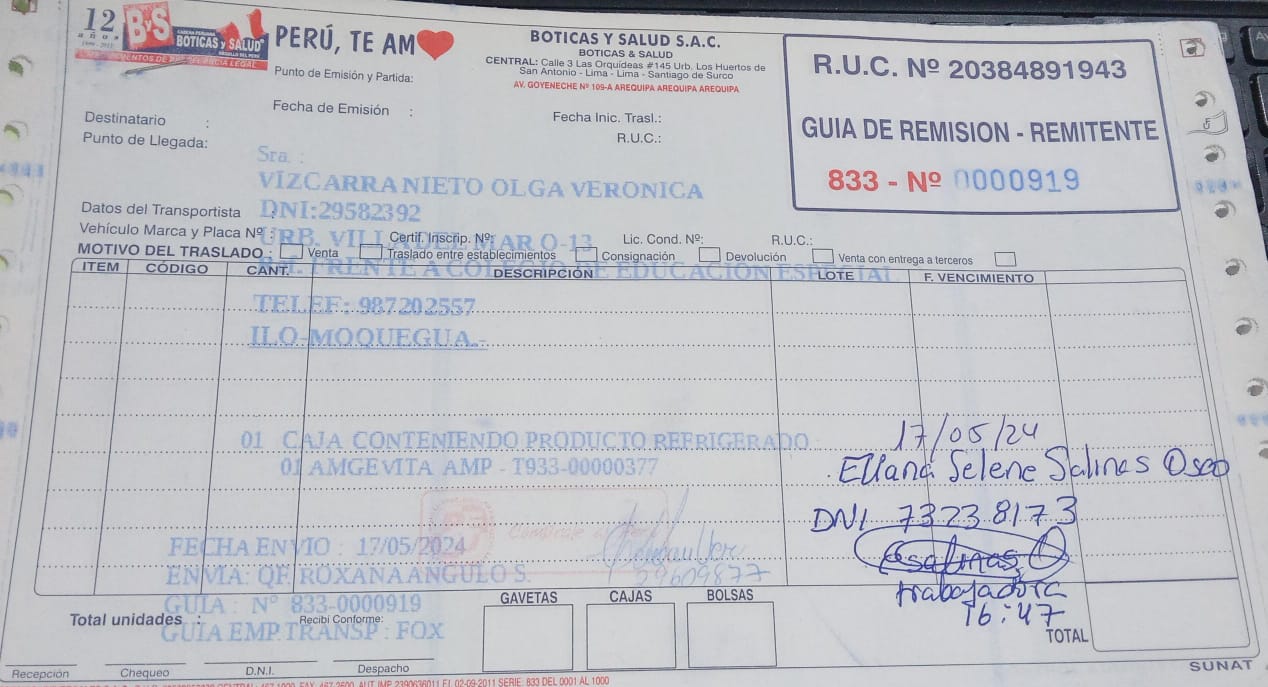 12 años
1999 - 2011
B&S BOTICAS y SALUD
PERÚ, TE AM
BOTICAS Y SALUD S.A.C.
BOTICAS & SALUD
CENTRAL: Calle 3 Las Orquideas #145 Urb. Los Huertos de
San Antonio - Lima - Lima - Santiago de Surco
AV. GOYENECHE Nº 109-A AREQUIPA AREQUIPA AREQUIPA
R.U.C. Nº 20384891943
GUIA DE REMISION - REMITENTE
833 - Nº 0000919
Punto de Emisión y Partida:
Fecha de Emisión :
Fecha Inic. Trasl.:
Destinatario :
R.U.C.:
Punto de Llegada:
Sra. :
VIZCARRA NIETO OLGA VERONICA
Datos del Transportista :
DNI:29582392
Vehículo Marca y Placa Nº :
Certif. Inscrip. Nº:
Lic. Cond. Nº:
R.U.C.:
URB. VILLA DEL MAR O-13
MOTIVO DEL TRASLADO : Venta Traslado entre establecimientos Consignación Devolución Venta con entrega a terceros
FRENTE A COLEGIO DE EDUCACION ESPECIAL
ITEM CÓDIGO CANT. DESCRIPCIÓN LOTE F. VENCIMIENTO
TELEF: 987202557
ILO-MOQUEGUA.-
01 CAJA CONTENIENDO PRODUCTO REFRIGERADO
01 AMGEVITA AMP - T933-00000377
17/05/24
Eliana Selene Salinas Osco
DNI 73238173
Esalinas
trabajadora
16:47
FECHA ENVIO : 17/05/2024
ENVIA: QF. ROXANA ANGULO S.
GUIA : N° 833-0000919
GUIA EMP.TRANSP : FOX
Total unidades :
Recibi Conforme:
GAVETAS CAJAS BOLSAS
TOTAL
Recepción Chequeo D.N.I. Despacho
SUNAT
AUT. IMP. 2390636011 F.I. 02-09-2011 SERIE: 833 DEL 0001 AL 1000